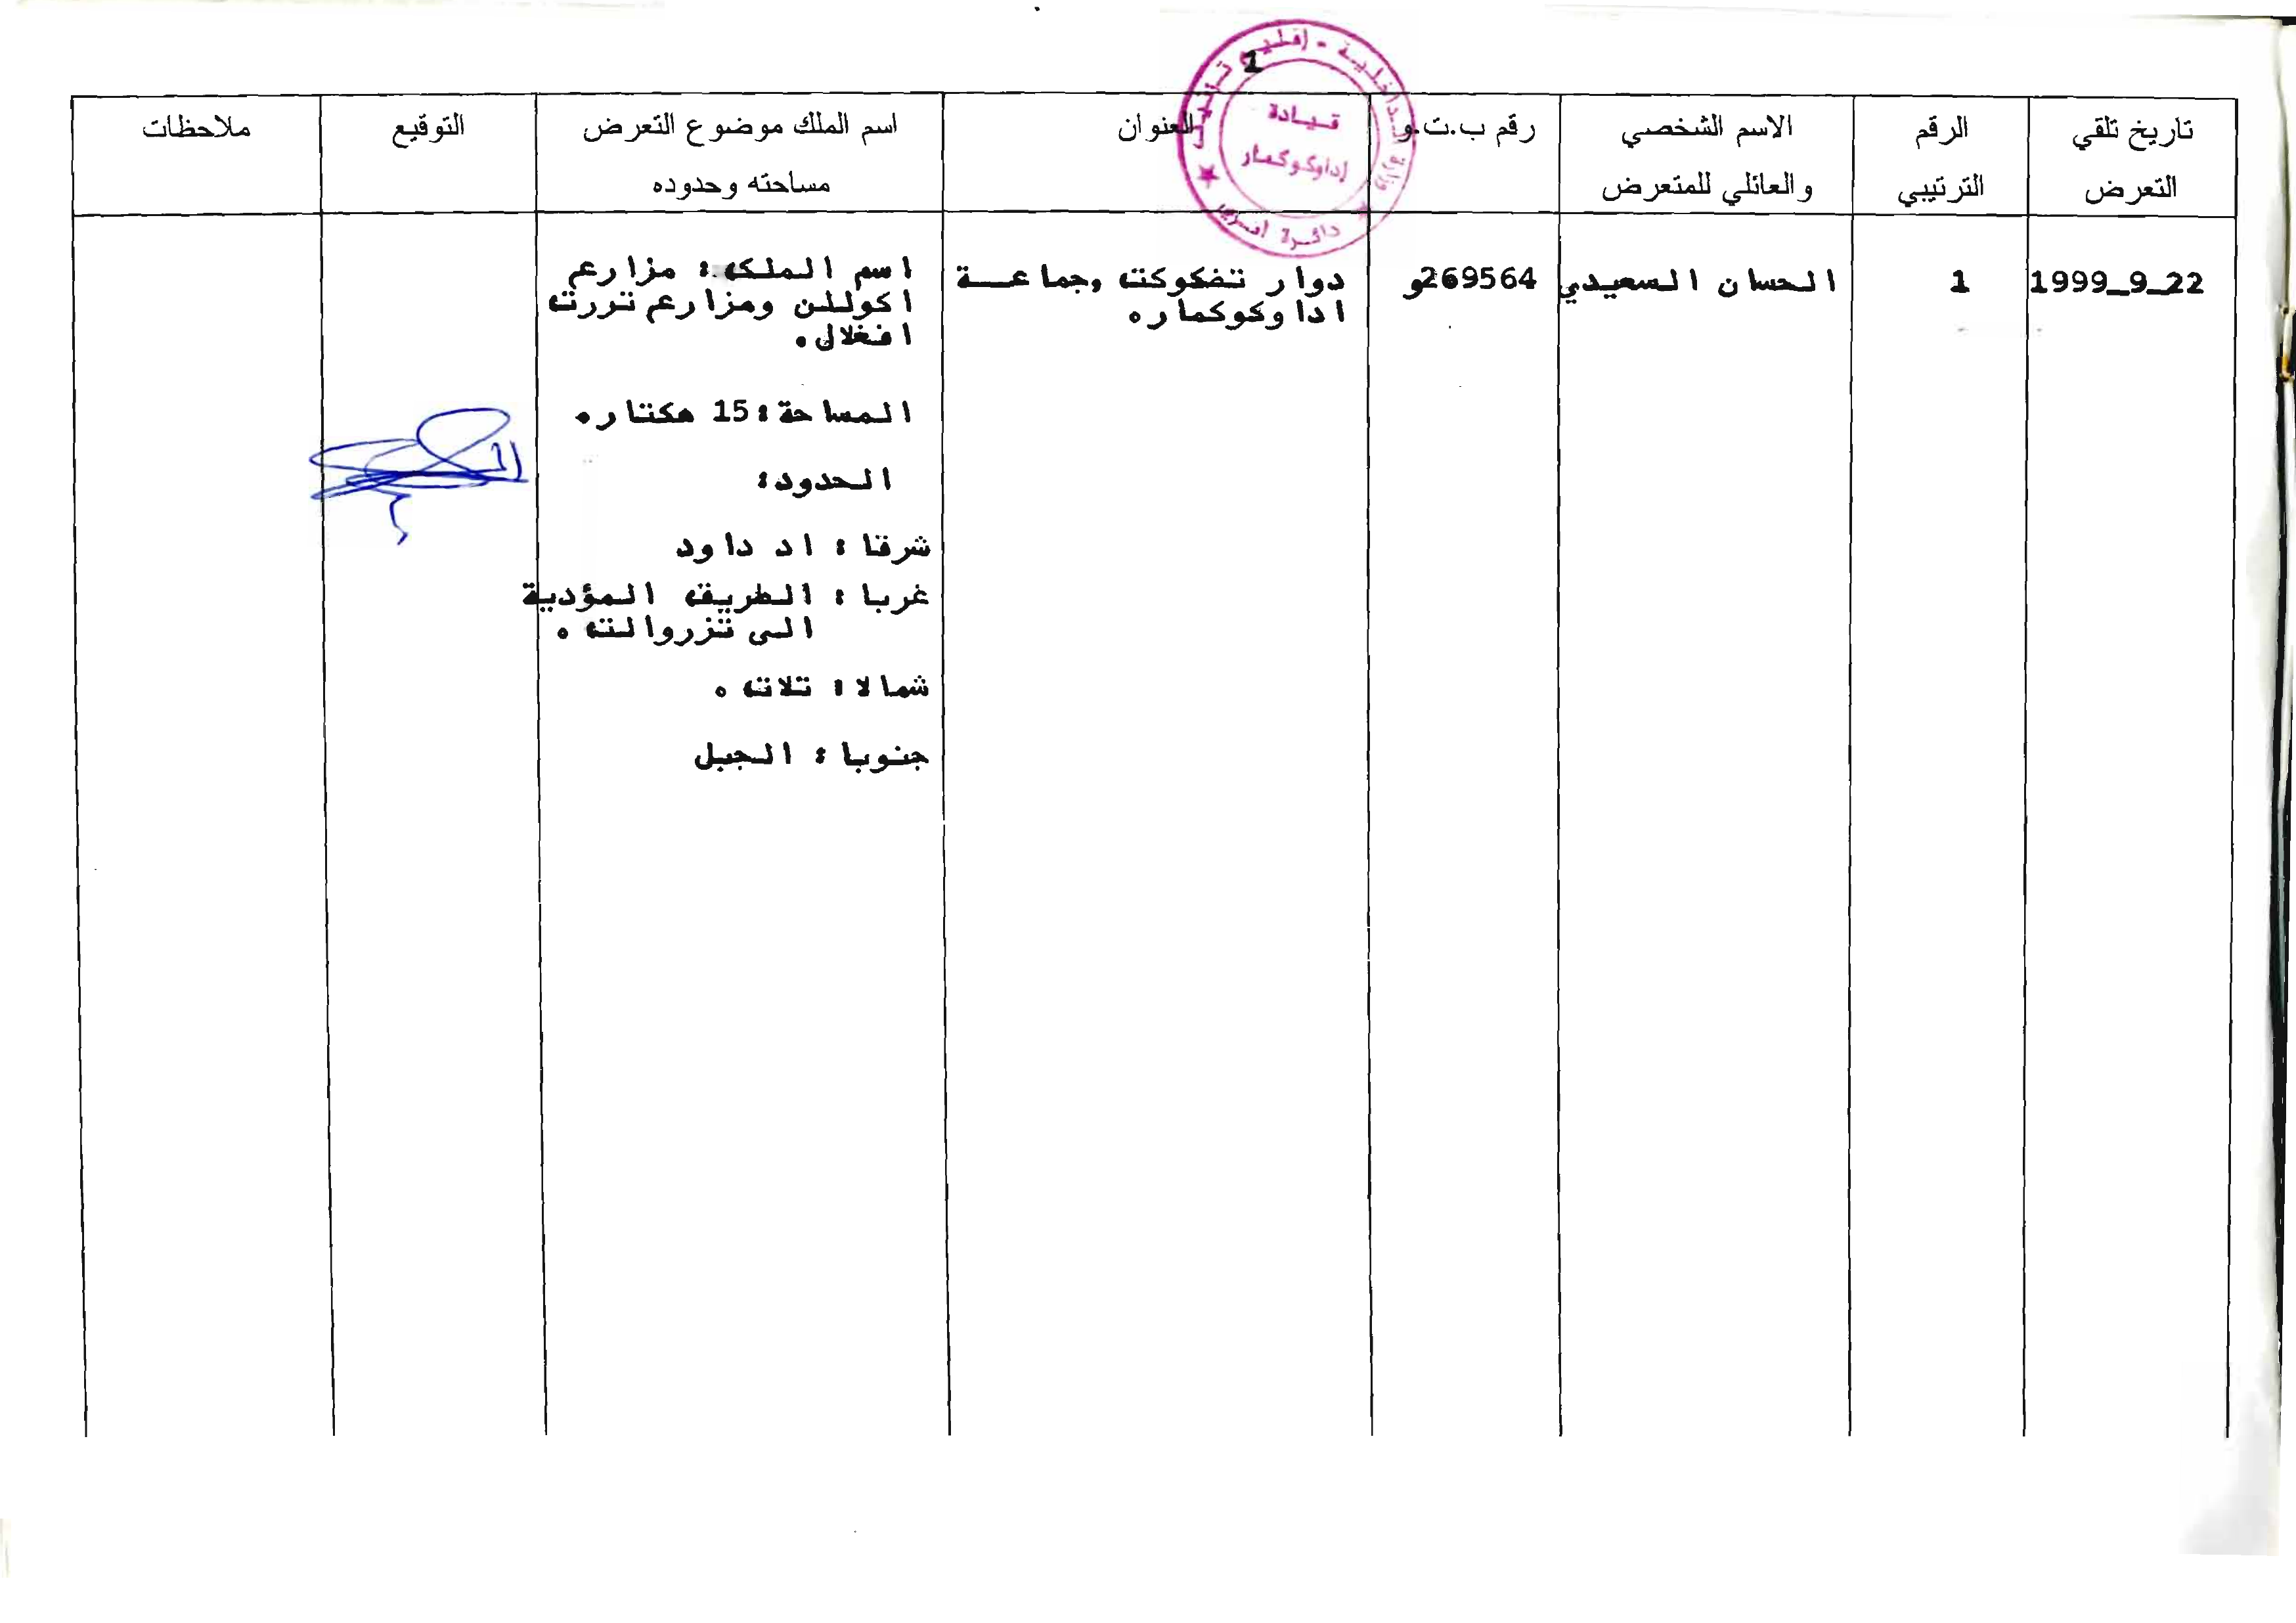 1
وزارة الداخلية - إقليم تزنيت
قيادة
إداوكوكمار
دائرة
تاريخ تلقي
التعرض
الرقم
الترتيبي
الاسم الشخصي
والعائلي للمتعرض
رقم ب.ت.و
العنوان
اسم الملك موضوع التعرض
مساحته وحدوده
التوقيع
ملاحظات
22_9_1999
1
الحسان السعيدي
269564و
دوار تفكوكت وجماعة
اداوكوكمار.
اسم الملك: مزارع
اكوللن ومزارع تررت
افغلال.
المساحة: 15 هكتار.
الحدود:
شرقا: اد داود
غربا: الطريق المؤدية
الى تزروالت.
شمالا: تلات.
جنوبا: الجبل